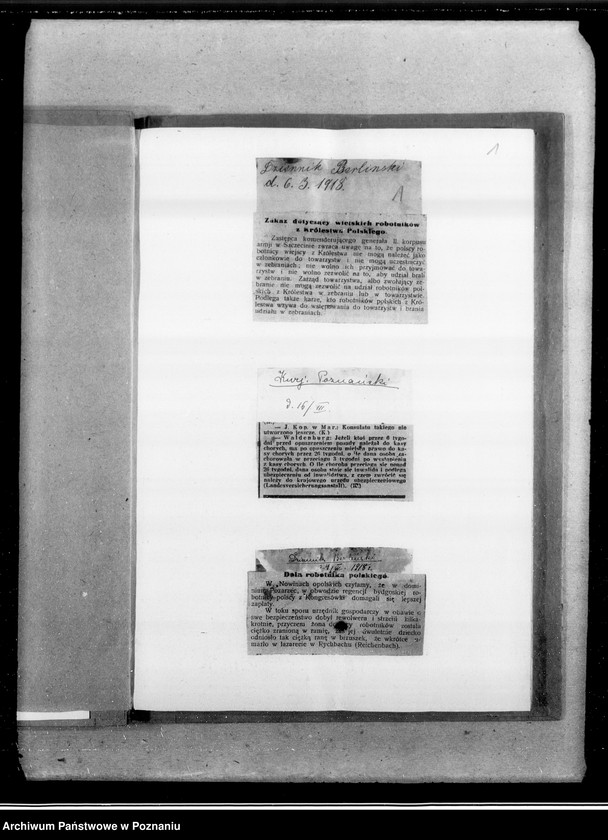 1
Dziennik Berliński
d. 6. 3. 1918.
1
Zakaz dotyczący wiejskich robotników
z Królestwa Polskiego.
Zastępca komenderującego generała II. korpusu
armji w Szczecinie zwraca uwagę na to, że polscy ro-
botnicy wiejscy z Królestwa nie mogą należeć jako
członkowie do towarzystw i nie mogą uczestniczyć
w zebraniach; nie wolno ich przyjmować do towa-
rzystw i nie wolno zezwolić na to, aby udział brali
w zebraniu. Zarząd towarzystwa, albo zwołujący ze-
branie nie mogą zezwolić na udział robotników pol-
skich z Królestwa w zebraniu lub w towarzystwie.
Podlega także karze, kto robotników polskich z Kró-
lestwa wzywa do wstępowania do towarzystw i brania
udziału w zebraniach.
Kurj. Poznański
d. 16/III.
— J. Kon w Mar.: Konsulatu takiego nie
utworzono jeszcze. (K.)
— Waldenburg: Jeżeli ktoś przez 6 tygo-
dni przed opuszczeniem posady należał do kasy
chorych, ma po opuszczeniu miejsca prawo do ka-
sy chorych przez 26 tygodni, o ile dana osoba za-
chorowała w przeciągu 3 tygodni po wystąpieniu
z kasy chorych. O ile choroba przeciąga się ponad
26 tygodni, dana osoba staje się inwalidą i podlega
ubezpieczeniu od inwalidztwa, z czem zwrócić się
należy do krajowego urzędu ubezpieczeniowego
(Landesversicherungsanstalt).
Dziennik
1918 r.
Dola robotnika polskiego.
W „Nowinach opolskich czytamy, że w domi-
nium w obwodzie regencji bydgoskiej ro-
botnicy polscy z Kongresówki domagali się lepszej
zapłaty.
W toku sporu urzędnik gospodarczy w obawie o
swe bezpieczeństwo dobył rewolweru i strzelił kilka-
krotnie, przyczem żona robotników została
ciężko zranioną w ramię, zaś jej dwuletnie dziecko
odniosło tak ciężką ranę w brzuszek, że wkrótce
zmarło w lazarecie w Rychbachu (Reichenbach).
Archiwum Państwowe w Poznaniu